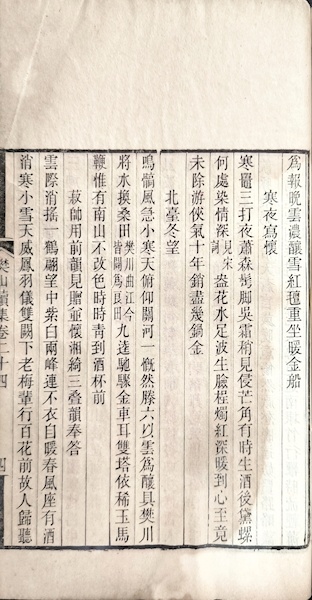 為報晩雲濃釀雪紅氊重坐暖金船
寒夜寫懷
寒鼉三打夜蕭森鬢脚吳霜稍見侵芒角有時生酒後黛螺
何處染情深見宋詞盎花水足波生臉桯燭紅深暖到心至竟
未除游俠氣十年銷盡幾鍋金
北臺冬望
鳴髇風急小寒天俯仰關河一慨然滕六以雲為釀具樊川
將水換桑田樊川曲江今皆闢為良田九逵馳騾金車耳雙塔依稀玉馬
鞭惟有南山不改色時時靑到酒杯前
菽師用前韻見贈並懷湘綺三疊韻奉答
雲際消搖一鶴翩望中紫白兩峰連不衣自暖春風座有酒
消寒小雪天威鳳羽儀雙闕下老梅輩行百花前故人歸聽
樊山續集卷二十四
四